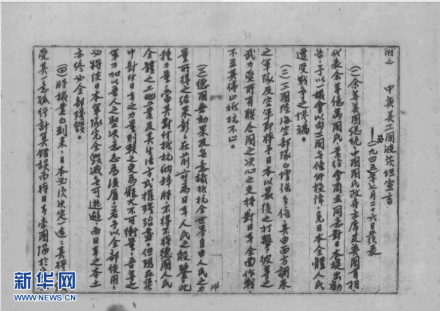 附二　中美英三國波茨坦宣言
(一九四五年七月二十六日發表)
(一)余等美國 國民政府主席及英國首相
代表余等億萬國民業經會商並同意對日本提出勸
告予以一機會以 投降免日本全體人民
遭受戰爭之慘禍
(二)三國陸海空部隊已增強多倍其由西方調來
之軍隊及空軍即將予日本以最後之打擊彼等之
武力受所有聯合國之決心之支持對日本全面作戰
不至其停止抵抗不止
(三)德國無效果及無意識抵抗全世界自由人民之力
量所得之結果彰彰在前可為日本人民之殷鑒此
種力量當其對付抵抗納粹時不得不將德國人民
全體之土地工業及其生活方式摧殘殆盡但現在集
中對付日本之力量則較之更為龐大不可衡量吾等之
軍力加以吾人之堅決意志為後盾若予以全部使用
必將使日本軍隊完全毀滅無可逃避而日本之本土
亦終必全部殘毀
(四)時機業已到來日本必須決定一途其將繼續
受其一意孤行計算錯誤而將日本帝國陷於
14
新华网
NEWS